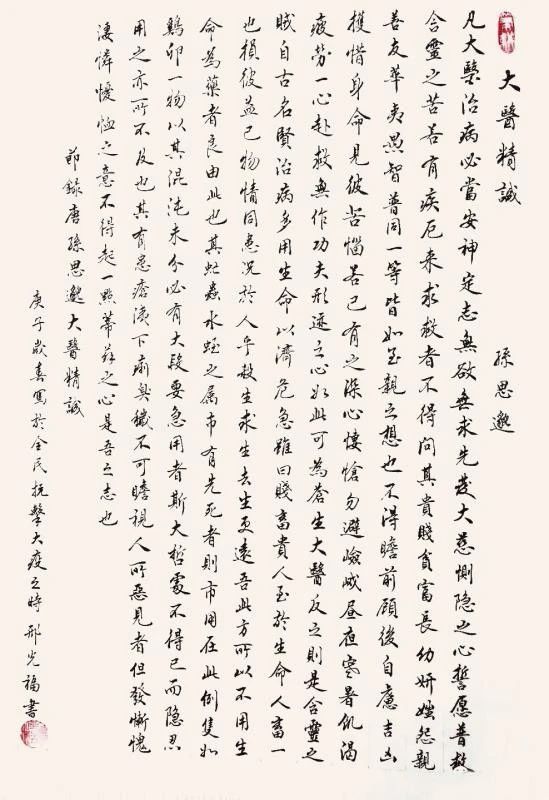 大醫精誠
孫思邈
凡大醫治病必當安神定志無欲無求先發大慈惻隐之心誓愿普救
含靈之苦若有疾厄来求救者不得问其貴賤貧富長幼妍媸怨親
善友華夷愚智普同一等皆如至親之想也不得瞻前顧後自慮吉凶
護惜身命見彼苦惱若己有之深心悽愴勿避嶮巇昼夜寒暑飢渴
疲劳一心赴救無作功夫形迹之心如此可為蒼生大醫反之則是含靈之
賊自古名賢治病多用生命以濟危急雖曰賤畜貴人至於生命人畜一
也損彼益己物情同患况於人乎殺生求生去生更遠吾此方所以不用生
命為藥者良由此也其虻蟲水蛭之属市有先死者則市用在此例隻如
鷄卵一物以其混沌未分必有大段要急用者斯大哲處不得已而隐忍
用之亦所不及也其有患瘡痍下痢臭穢不可瞻視人所惡見者但發慚愧
淒憐憂恤之意不得起一點蒂芥之心是吾之志也
節錄唐孫思邈大醫精誠
庚子歲春寫於全民抗擊大疫之時邢光福書